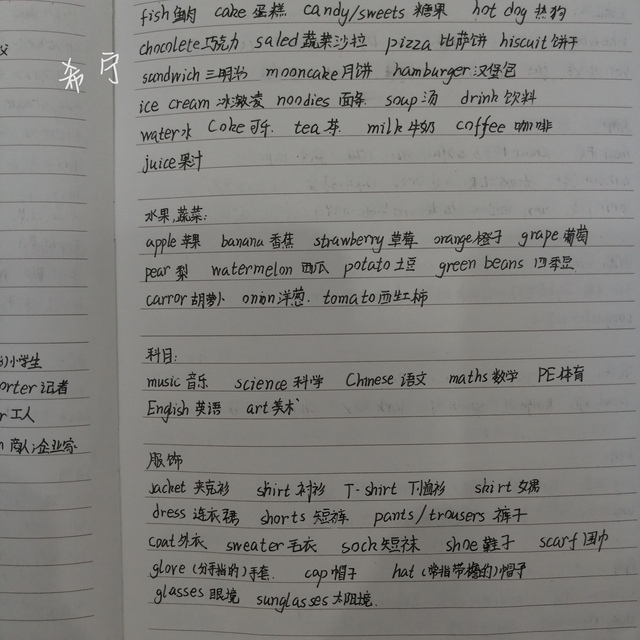 父
希宁
小学生
orter 记者
r 工人
n 商人;企业家
fish 鱼肉 cake 蛋糕 candy/sweets 糖果 hot dog 热狗
chocolete 巧克力 saled 蔬菜沙拉 pizza 比萨饼 hiscuit 饼干
sandwich 三明治 mooncake 月饼 hamburger 汉堡包
ice cream 冰激凌 noodies 面条 soup 汤 drink 饮料
water 水 Coke 可乐 tea 茶 milk 牛奶 coffee 咖啡
juice 果汁
水果,蔬菜:
apple 苹果 banana 香蕉 strawberry 草莓 orange 橙子 grape 葡萄
pear 梨 watermelon 西瓜 potato 土豆 green beans 四季豆
carror 胡萝卜 onion 洋葱 tomato 西红柿
科目:
music 音乐 science 科学 Chinese 语文 maths 数学 PE 体育
English 英语 art 美术
服饰
jacket 夹克衫 shirt 衬衫 T-shirt T恤衫 skirt 女裙
dress 连衣裙 shorts 短裤 pants/trousers 裤子
coat 外衣 sweater 毛衣 sock 短袜 shoe 鞋子 scarf 围巾
glove (分手指的)手套 cap 帽子 hat (常指带檐的)帽子
glasses 眼镜 sunglasses 太阳镜